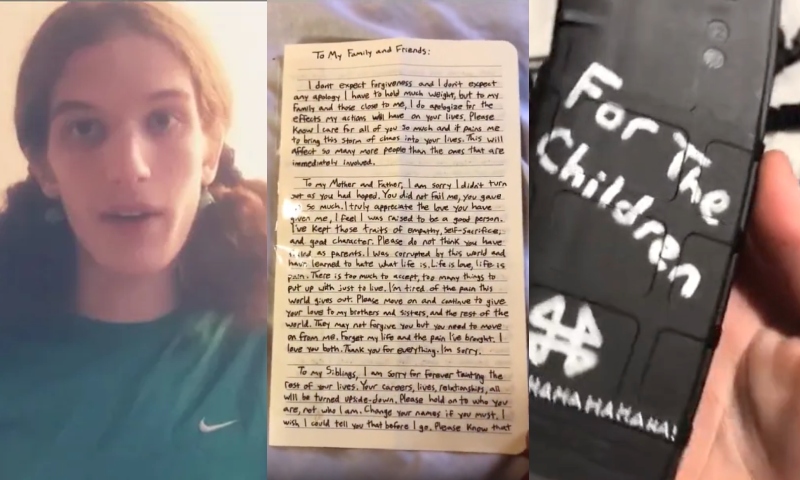 To My Family and Friends:
I dont expect forgiveness and I don't expect
any apology I have to hold much weight, but to my
family and those close to me, I do apologize for the
effects my actions will have on your lives. Please
Know I care for all of you so much and it pains me
to bring this storm of chaos into your lives. This will
affect so many more people than the ones that are
immediately involved.
To my Mother and Father, I am sorry I didn't turn
out as you had hoped. You did not fail me, you gave
so much. I truly appreciate the love you have
given me, I feel I was raised to be a good person.
I've Kept those traits of empathy, self-sacrifice,
and good character. Please do not think you have
failed as parents. I was corrupted by this world and
have learned to hate what life is. Life is love, life is
pain. There is too much to accept, too many things to
put up with just to live. I'm tired of the pain this
world gives out. Please move on and continue to give
your love to my brothers and sisters, and the rest of the
world. They may not forgive you but you need to move
on from me. Forget my life and the pain I've brought. I
love you both. Thank you for everything. I'm sorry.
To my Siblings, I am sorry for forever tainting the
rest of your lives. Your careers, lives, relationships, all
will be turned upside-down. Please hold on to who you
are, not who I am. Change your names if you must. I
wish I could tell you that before I go. Please Know that
For The
Children
HAHAHAHAHA!